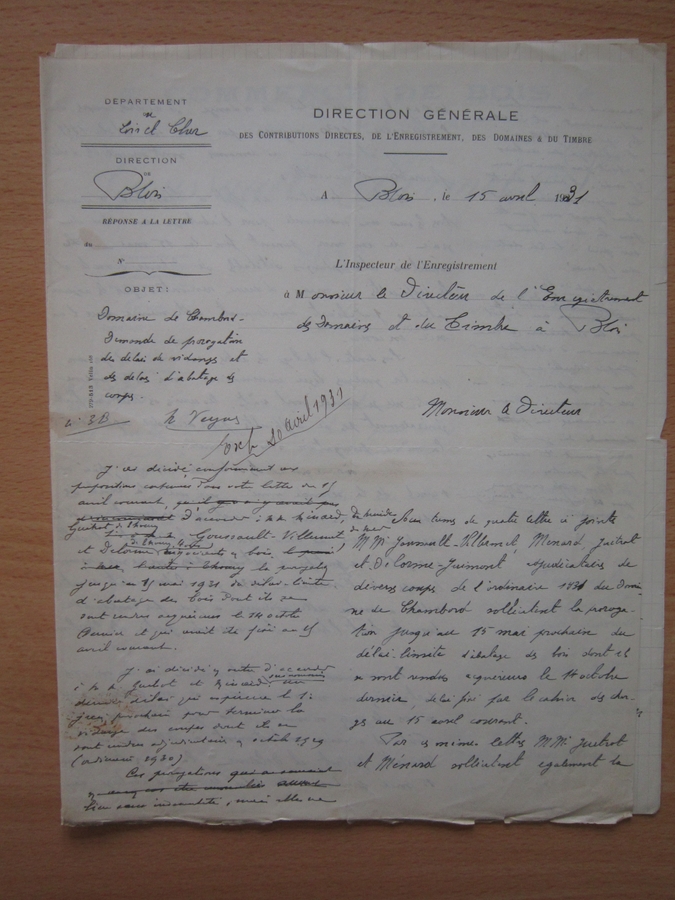 DÉPARTEMENT
DE
Loir et Cher
DIRECTION
DE
Blois
RÉPONSE A LA LETTRE
du
N°
OBJET:
Domaine de Chambord -
Demande de prorogation
des délais de vidange et
des délais d'abatage des
coupes.
n° 3B
DIRECTION GÉNÉRALE
DES CONTRIBUTIONS DIRECTES, DE L'ENREGISTREMENT, DES DOMAINES & DU TIMBRE
A Blois, le 15 avril 1931
L'Inspecteur de l'Enregistrement
à Monsieur le Directeur de l'Enregistrement
des Domaines et du Timbre à Blois
Monsieur le Directeur
20 avril 1931
J'ai décidé, conformément aux
propositions contenues dans votre lettre du 15
avril courant,
d'accorder à M.M. Ménard,
Goussault-Villemont,
et Delorme
jusqu'au 15 mai 1931 du délai-limite
d'abatage des bois dont ils se
sont rendus acquéreurs le 14 octobre
dernier et qui avait été fixé au 15
avril courant.
J'ai décidé, en outre, d'accorder
à M.M. Guétrot et Ménard un
dernier délai qui expirera le 1er
juin prochain pour terminer la
vidange des coupes dont ils se
sont rendus adjudicataires en octobre 1929
(ordinaire 1930)
Ces prorogations
lieu sans indemnité, mais elles ne
Aux termes de quatre lettres ci-jointes
M.M. Goussault-Villemont, Ménard, Guétrot
et Delorme-Guimont adjudicataires de
diverses coupes de l'ordinaire 1931 du Domai-
ne de Chambord sollicitent la proroga-
tion jusqu'au 15 mai prochain du
délai-limite d'abatage des bois dont ils
se sont rendus acquéreurs le 14 octobre
dernier, délai fixé par le cahier des char-
ges au 15 avril courant.
Par ces mêmes lettres M.M. Guétrot
et Ménard sollicitent également la